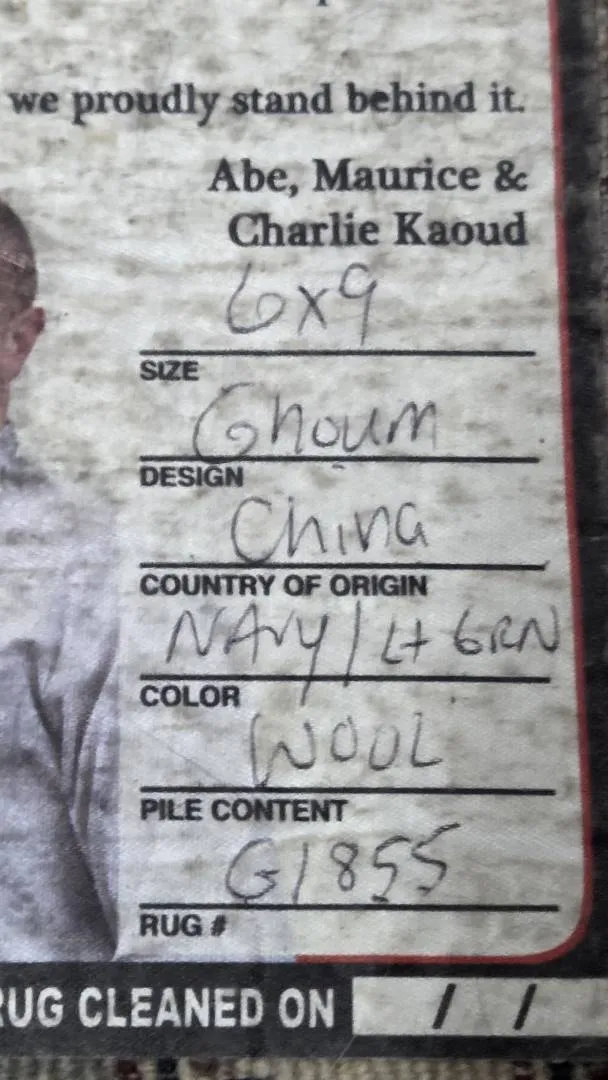 we proudly stand behind it.
Abe, Maurice &
Charlie Kaoud
6x9
SIZE
Ghoum
DESIGN
China
COUNTRY OF ORIGIN
NAVY/Lt GRN
COLOR
WOOL
PILE CONTENT
G1855
RUG #
RUG CLEANED ON / /